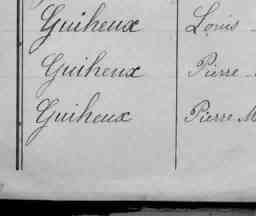 Guiheux Louis
Guiheux Pierre
Guiheux Pierre M